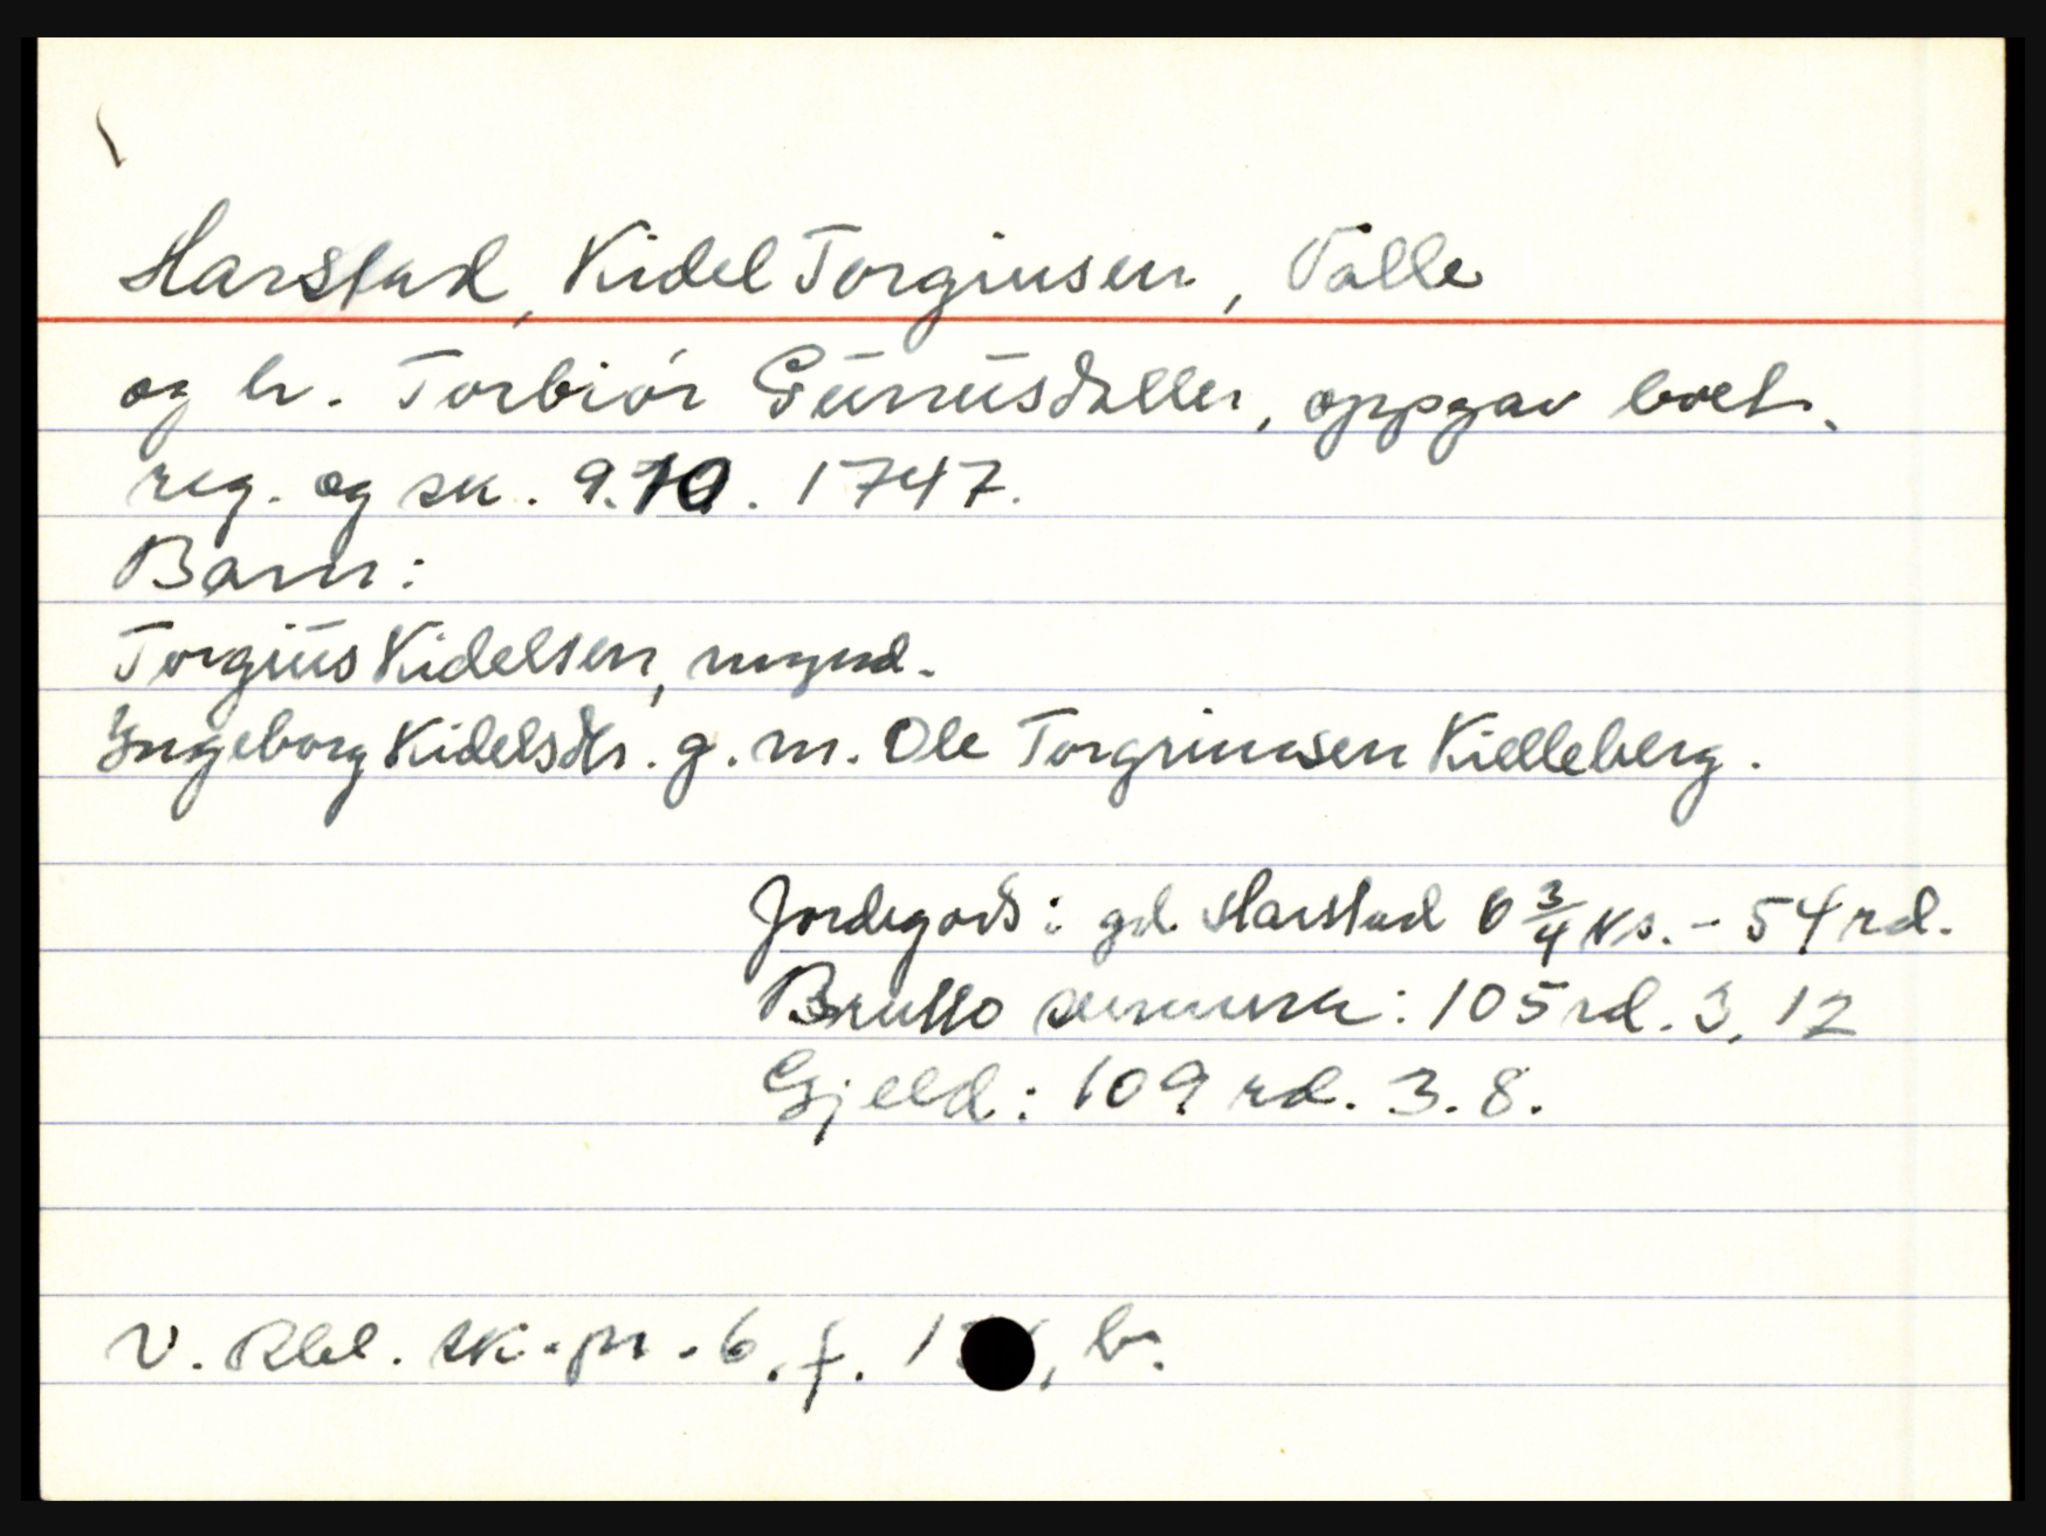 Harstad, Kidel Torgiusen, Valle
og h. Torbiór Gunnusdatter, oppgav boet.
reg. og sk. 9.10. 1747.
Barn:
Torgius Kidelsen, mynd.
Ingeborg Kidelsdtr. g. m. Ole Torgrimsen Kielleberg.
Jordegods: gd. Harstad 6 3/4 ks. - 54 rd.
Brutto : 105 rd. 3, 12
Gjeld: 109 rd. 3. 8.
V. Rbl. sk. pr. 6, f. , b.